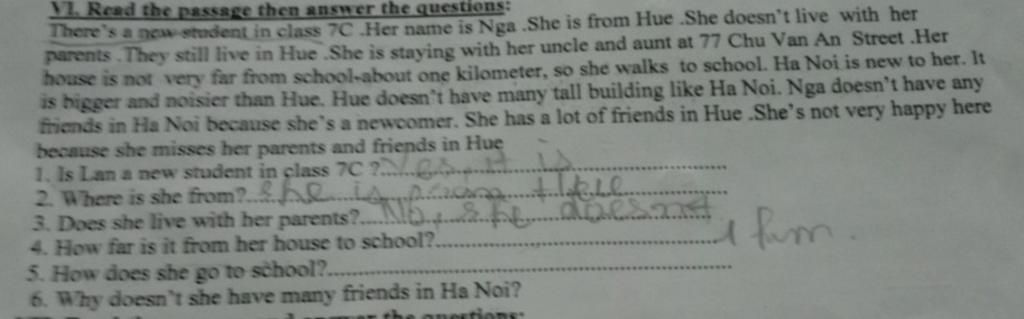 VI. Read the passage then answer the questions:
There's a new student in class 7C .Her name is Nga .She is from Hue .She doesn't live with her
parents .They still live in Hue .She is staying with her uncle and aunt at 77 Chu Van An Street .Her
house is not very far from school-about one kilometer, so she walks to school. Ha Noi is new to her. It
is bigger and noisier than Hue. Hue doesn't have many tall building like Ha Noi. Nga doesn't have any
friends in Ha Noi because she's a newcomer. She has a lot of friends in Hue .She's not very happy here
because she misses her parents and friends in Hue
1. Is Lan a new student in class 7C ?...Yes, it is...
2. Where is she from?...She is from Hue...
3. Does she live with her parents?...No, she doesn't...
4. How far is it from her house to school?...1 km.
5. How does she go to school?...
6. Why doesn't she have many friends in Ha Noi?